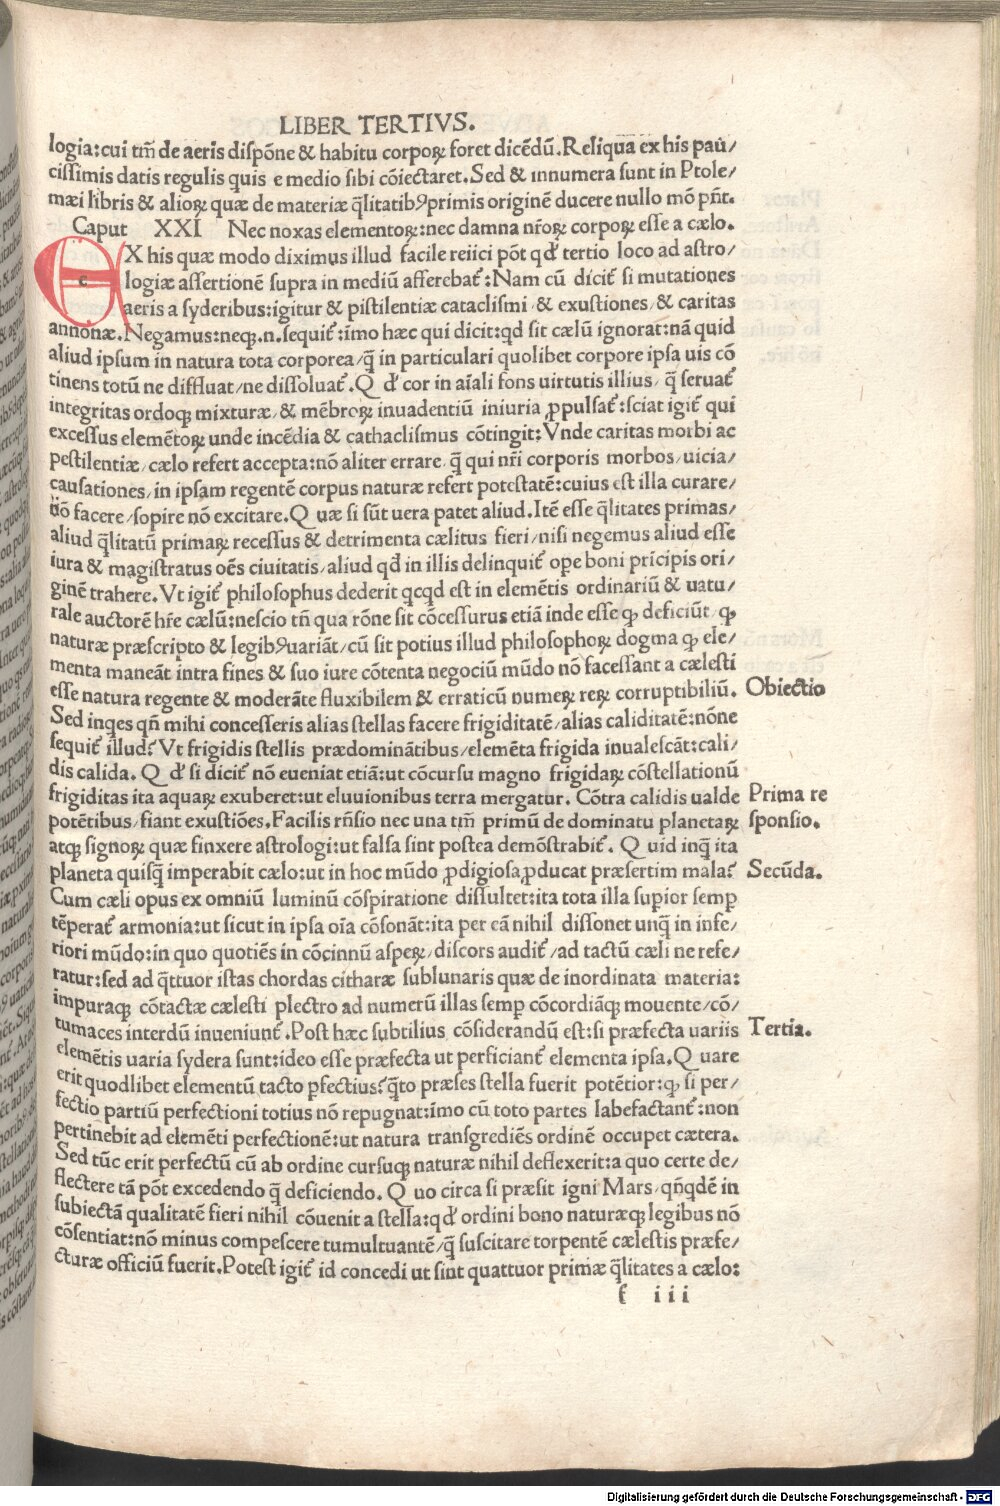 LIBER TERTIVS.
logia:cui tm̄ de aeris dispōne & habitu corporꝝ foret dicēdū.Reliqua ex his pau/
cissimis datis regulis quis e medio sibi cōiectaret.Sed & innumera sunt in Ptole/
mæi libris & aliorꝝ quæ de materiæ q̄litatibꝰprimis originē ducere nullo mō pn̄t.
Caput XXI Nec noxas elementorꝝ:nec damna nr̄orꝝ corporꝝ esse a cælo.
EX his quæ modo diximus illud facile reiici pōt qđ tertio loco ad astro/
e
logiæ assertionē supra in mediū afferebat᷑:Nam cū dicit᷑ si mutationes
aeris a syderibus:igitur & pistilentiæ cataclismi/& exustiones/& caritas
annonæ.Negamus:neqꝫ.n.sequit᷑:imo hæc qui dicit:qđ sit cælū ignorat:nā quid
aliud ipsum in natura tota corporea/q̄ in particulari quolibet corpore ipsa uis cō
tinens totū ne diffluat/ne dissoluat᷑.Q đ cor in aīali fons uirtutis illius/q̄ seruat᷑
integritas ordoqꝫ mixturæ/& mēbrorꝝ inuadentiū iniuria ꝓpulsat᷑:sciat igit᷑ qui
excessus elemētorꝝ unde incēdia & cathaclismus cōtingit:Vnde caritas morbi ac
pestilentiæ/cælo refert accepta:nō aliter errare/q̄ qui nr̄i corporis morbos/uicia/
causationes/in ipsam regentē corpus naturæ refert potestatē:cuius est illa curare/
nō facere/sopire nō excitare.Q uæ si sūt uera patet aliud.Itē esse q̄litates primas/
aliud q̄litatū primarꝝ recessus & detrimenta cælitus fieri/nisi negemus aliud esse
iura & magistratus oēs ciuitatis/aliud qđ in illis delinquit᷑ ope boni pricipis ori/
ginē trahere.Vt igit᷑ philosophus dederit qcqd est in elemētis ordinariū & uatu/
rale auctorē hr̄e cælū:nescio tn̄ qua rōne sit cōcessurus etiā inde esse ꝙ deficiūt/ꝙ
naturæ præscripto & legibꝰuariāt/cū sit potius illud philosophorꝝ dogma ꝙ ele/
menta maneāt intra fines & suo iure cōtenta negociū mūdo nō facessant a cælesti
esse natura regente & moderāte fluxibilem & erraticū numerꝝ rerꝝ corruptibiliū.
Obiectio
Sed inqes qn̄ mihi concesseris alias stellas facere frigiditatē/alias caliditatē:nōne
sequit᷑ illud? Vt frigidis stellis prædominātibus/elemēta frigida inualescāt:cali/
dis calida. Q đ si dicit᷑ nō eueniat etiā:ut cōcursu magno frigidarꝝ cōstellationū
frigiditas ita aquarꝝ exuberet:ut eluuionibus terra mergatur. Cōtra calidis ualde
Prima re
potētibus/fiant exustiōes.Facilis rn̄sio nec una tm̄ primū de dominatu planetarꝝ
sponsio.
atqꝫ signorꝝ quæ finxere astrologi:ut falsa sint postea demōstrabit᷑. Q uid inq̄ ita
planeta quisq̄ imperabit cælo:ut in hoc mūdo ꝓdigiosa ꝓducat præsertim mala?
Secūda.
Cum cæli opus ex omniū luminū cōspiratione dissultet:ita tota illa supior semꝑ
tēperat᷑ armonia:ut sicut in ipsa oīa cōsonāt:ita per eā nihil dissonet unq̄ in infe/
riori mūdo:in quo quotiēs in cōcinnū asperꝝ/discors audit᷑/ad tactū cæli ne refe/
ratur:sed ad q̄ttuor istas chordas citharæ sublunaris quæ de inordinata materia:
impuraqꝫ cōtactæ cælesti plectro ad numerū illas semꝑ cōcordiāqꝫ mouente/cō/
tumaces interdū inueniunt᷑.Post hæc subtilius cōsiderandū est:si præfecta uariis
Tertia.
elemētis uaria sydera sunt:ideo esse præfecta ut perficiant᷑ elementa ipsa.Q uare
erit quodlibet elementū tacto ꝑfectius?q̄to præses stella fuerit potētior:ꝙ si per/
fectio partiū perfectioni totius nō repugnat:imo cū toto partes labefactant᷑:non
pertinebit ad elemēti perfectionē:ut natura transgrediēs ordinē occupet cætera.
Sed tūc erit perfectū cū ab ordine cursuqꝫ naturæ nihil deflexerit:a quo certe de/
flectere tā pōt excedendo q̄ deficiendo. Q uo circa si præsit igni Mars/qn̄qdē in
subiectā qualitatē fieri nihil cōuenit a stella:qđ ordini bono naturæqꝫ legibus nō
cōsentiat:nō minus compescere tumultuantē/q̄ suscitare torpentē cælestis præfe/
cturæ officiū fuerit.Potest igit᷑ id concedi ut sint quattuor primæ q̄litates a cælo:
f iii
Digitalisierung gefördert durch die Deutsche Forschungsgemeinschaft - DFG